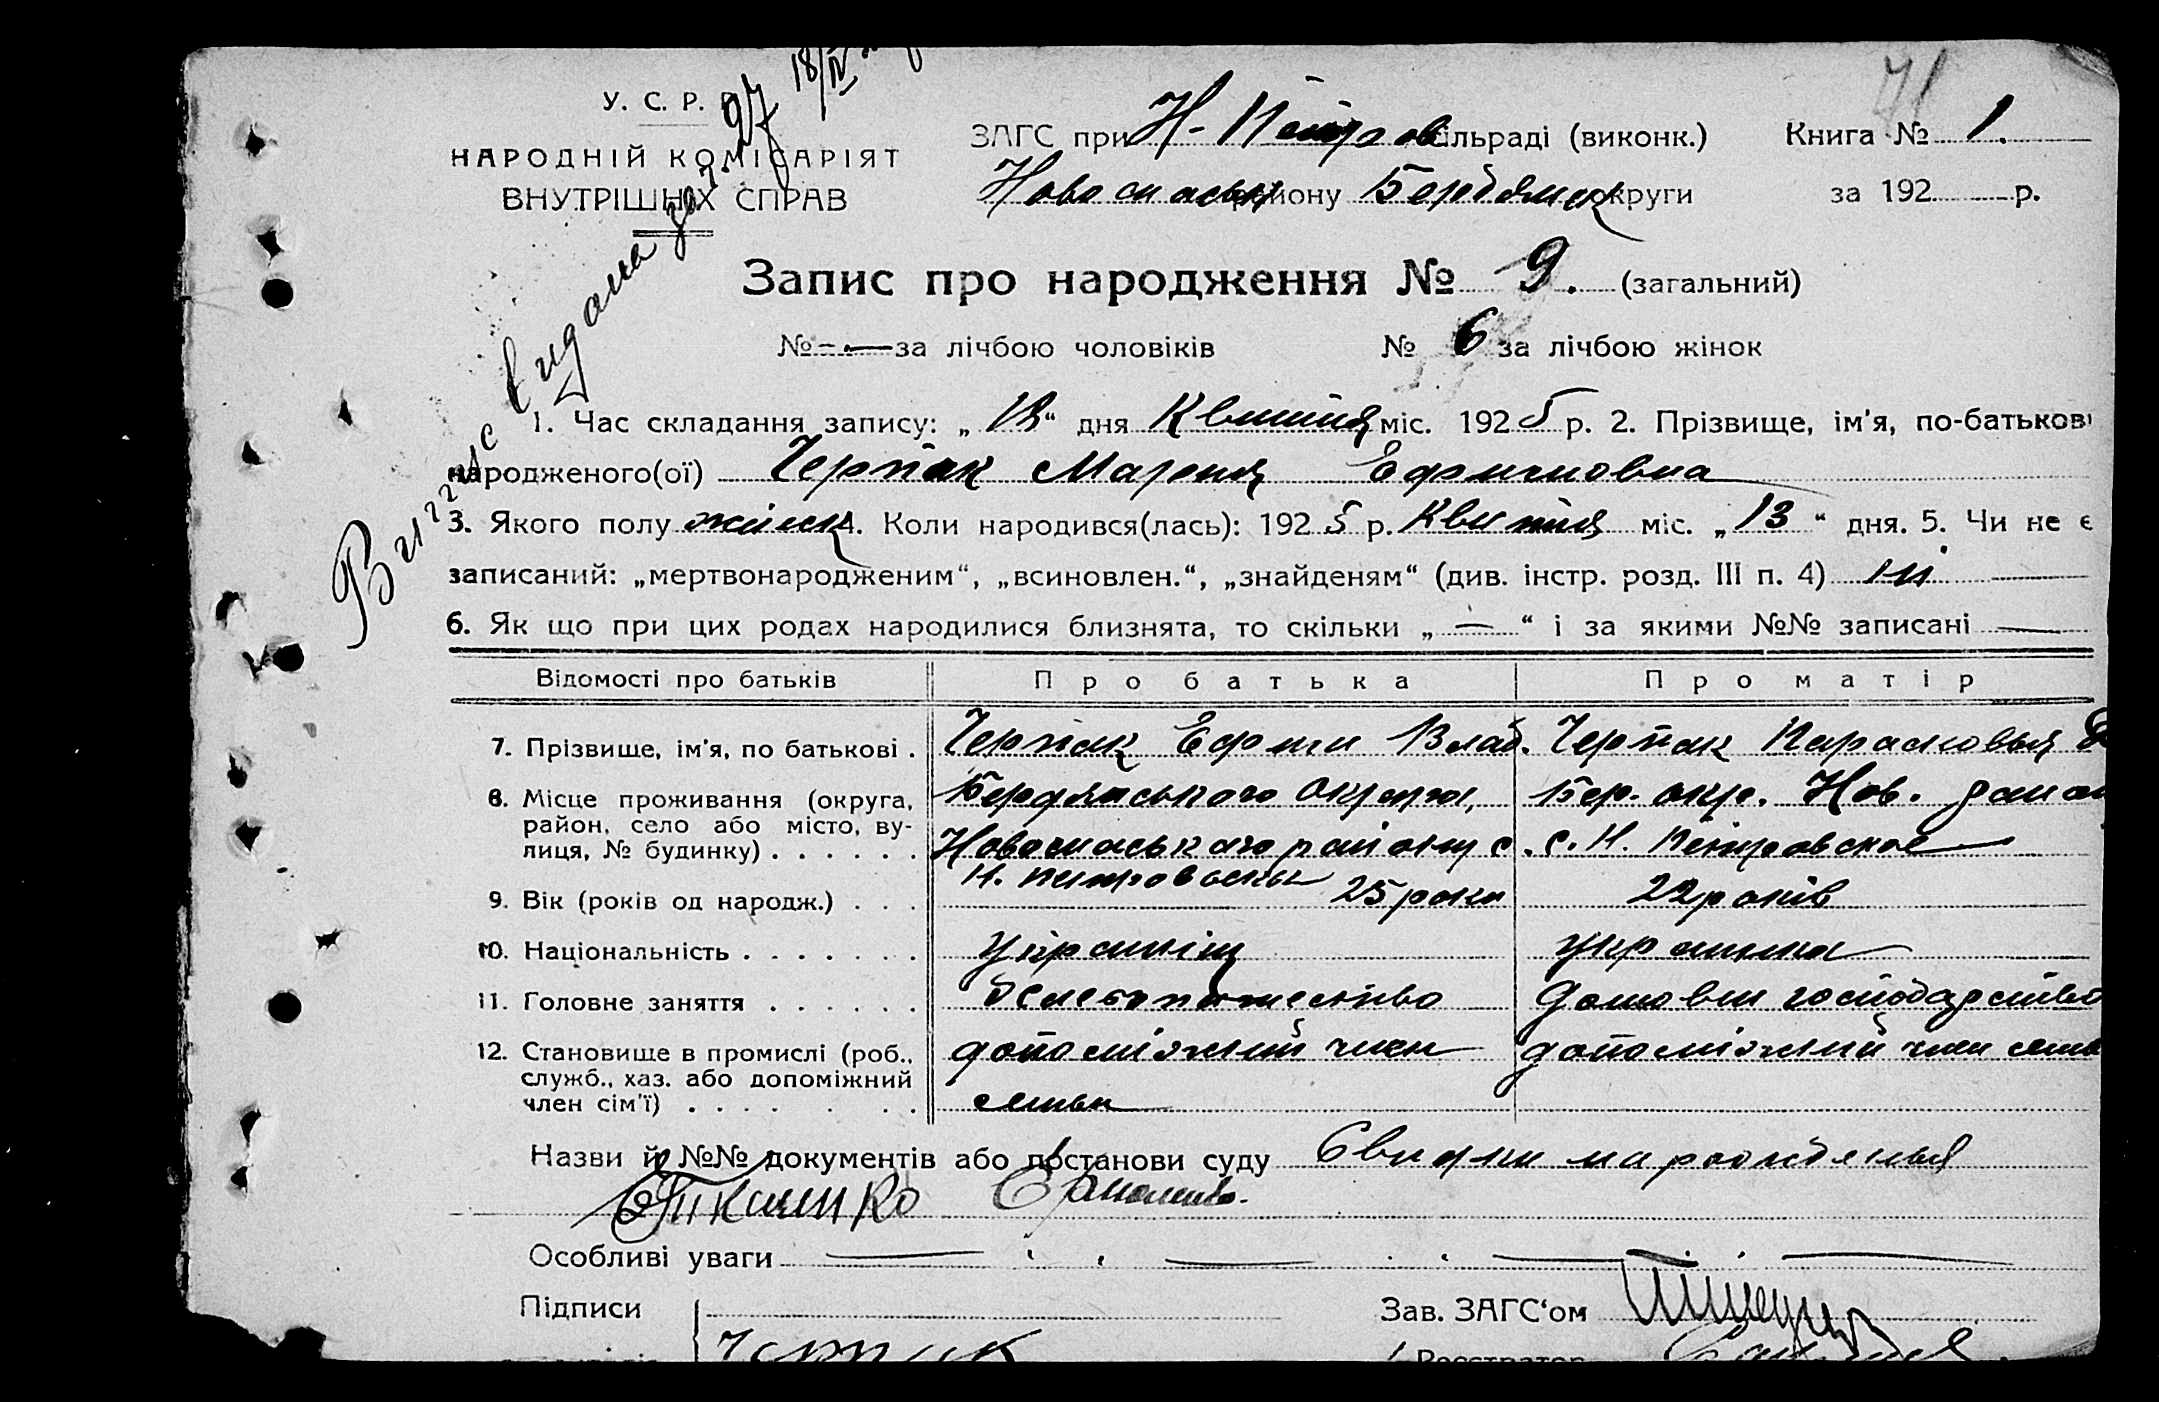 У. С. Р. Р.
НАРОДНІЙ КОМІСАРІЯТ
ВНУТРІШНІХ СПРАВ
Виппис видана за № 27 18/IV
71
ЗАГС при Н-Петров сільраді (виконк.) Книга № 1.
Новоспаськ району Бердянск округи за 192 р.
Запис про народження № 9. (загальний)
№ — за лічбою чоловіків № 6 за лічбою жінок
1. Час складання запису: „ “ дня Квитня міс. 1925 р. 2. Прізвище, ім’я, по-батькові
народженого(ої) Черпак Мария Ефимовна
3. Якого полу жіноч 4. Коли народився(лась): 1925 р. Квитня міс. „13“ дня. 5. Чи не є
записаний: „мертвонародженим“, „всиновлен.“, „знайденям“ (див. інстр. розд. III п. 4) ні
6. Як що при цих родах народилися близнята, то скільки „ — “ і за якими №№ записані —
Відомості про батьків Про батька Про матір
7. Прізвище, ім’я, по батькові . Черпак Ефим Влад. Черпак Парасковья
8. Місце проживання (округа, район, село або місто, вулиця, № будинку) . . . . . . Бердянського округи, Бер. окр. Нов. район
Новоспаського району с. с. Н. Петровское
Н. Петровськи
9. Вік (років од народж.) . . . 25 роки 22 років
10. Національність . . . . . . . українець украинка
11. Головне заняття . . . . . . домови господарство
12. Становище в промислі (роб., служб., хаз. або допоміжний член сім’ї) . . . . . . допоміжний член допоміжний член семьи
семьи
Назви й №№ документів або постанови суду Свидки нарождення
Ткаченко Ермоленко.
Особливі уваги —
Підписи Зав. ЗАГС‘ом
Черпак Реєстратор